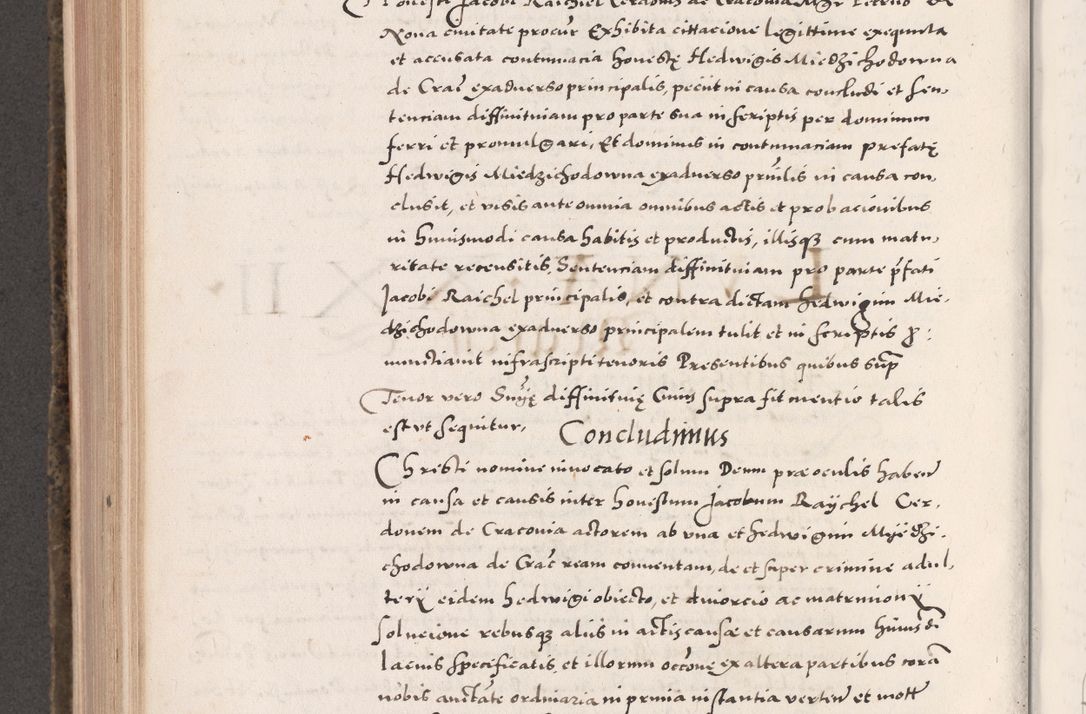 Honesti Jacobi Raichel Cerdonis de Cracovia Mgr Petrus de
Nova civitate procur Exhibita cittacione legittime exequuta
et accusata contumacia honestę Hedwigis Miedzichodowna
de Crac exadverso principalis, peciit in causa concludi et sen-
tenciam diffinitivam pro parte sua in scriptis per dominum
ferri et promulgari, Et dominus in contumaciam prefatę
Hedwigis Miedzichodowna exadverso prnlis in causa con-
clusit, et visis ante omnia omnibus actis et probacionibus
in huiusmodi causa habitis et productis, illisqz cum matu-
ritate recensitis, Sentenciam diffinitivam pro parte pfati
Jacobi Raichel principalis, et contra dictam Hedwigim Mie-
dzichodowna exadverso principalem tulit et in scriptis p:
nunctiavit infrascripti tenoris Presentibus quibus sup
Tenor vero Snyę diffinitivę Cuius supra fit mentio talis
est ut sequitur,
Concludimus
Christi nomine invocato et solum Deum præ oculis haben
in causa et causis inter honestum Jacobum Raychel Cer-
donem de Cracovia actorem ab una et Hedwigim Myedzi-
chodowna de Crac ream conventam, de et super crimine adul-
terij eidem Hedwigi obiecto, et divorcio ac matrimonij
solucione rebusqz aliis in actis causæ et causarum huiusdi
lacius specificatis et illorum occone ex altera partibus cora
nobis auctate ordinaria in prima instantia verten et mott